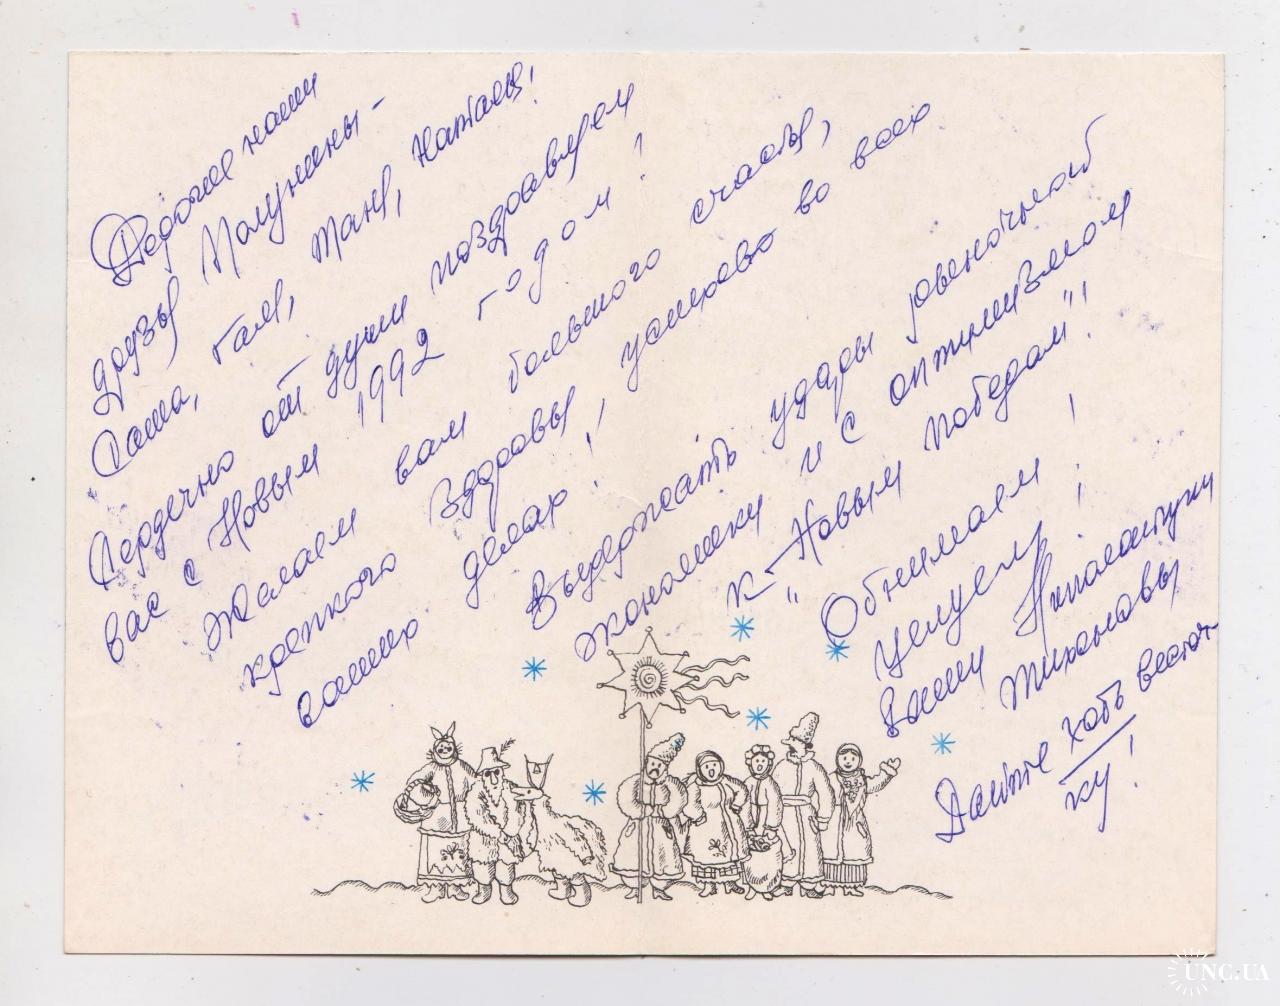 Дорогие наши
друзья Полунины –
Саша, Галя, Таня, Наташа!
Сердечно от души поздравляем
вас с Новым 1992 годом!
Желаем вам большого счастья,
крепкого здоровья, успехов во всех
ваших делах!
Выдержать удары рыночной
экономики и с оптимизмом
к "Новым победам"!
Обнимаем!
Целуем!
Ваши
Тихоновы
Дайте хоть весточ-
ку!
UNC.UA